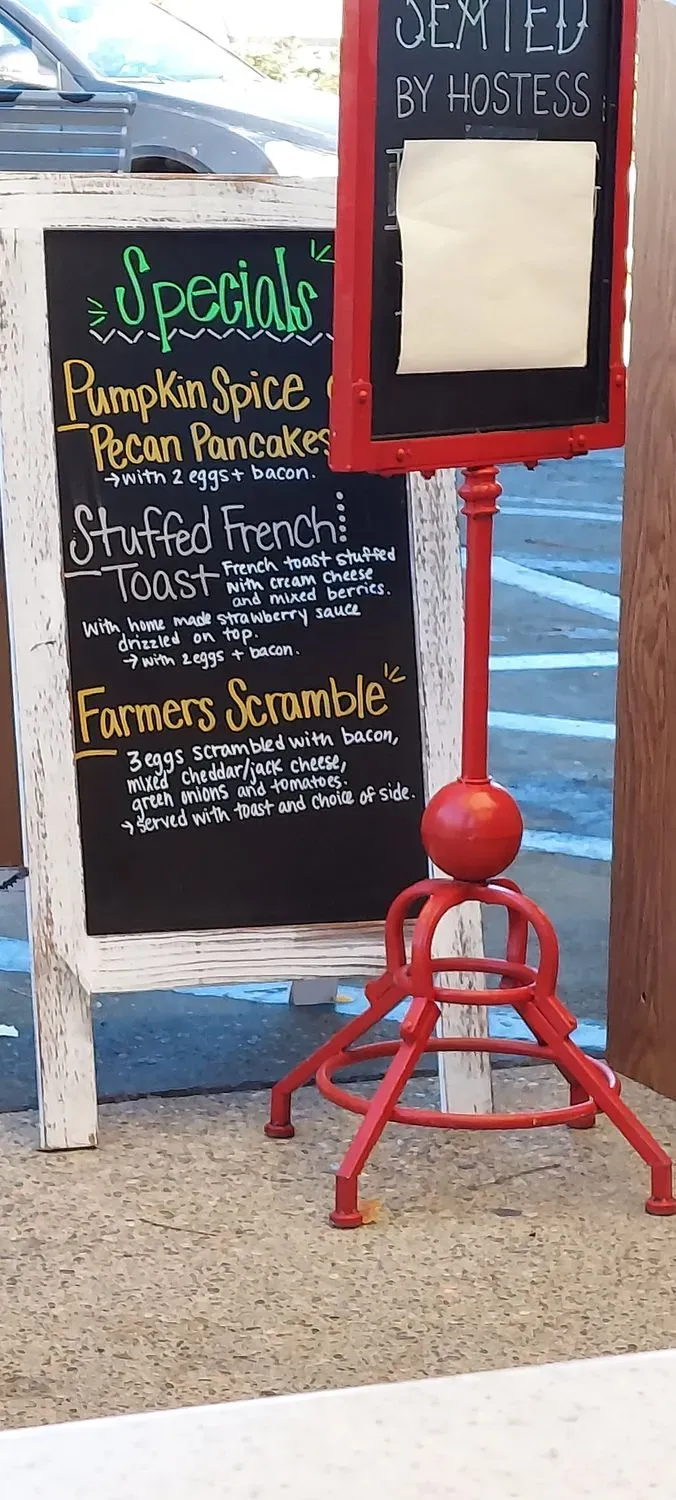 SEATED
BY HOSTESS
Specials
Pumpkin Spice
Pecan Pancakes
→with 2 eggs + bacon.
Stuffed French
Toast
French toast stuffed
with cream cheese
and mixed berries.
With home made strawberry sauce
drizzled on top.
→ with 2 eggs + bacon.
Farmers Scramble
3 eggs scrambled with bacon,
mixed cheddar/jack cheese,
green onions and tomatoes.
→ Served with toast and choice of side.